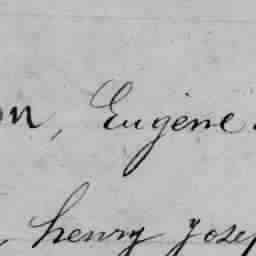 on, Eugène
henry Josep